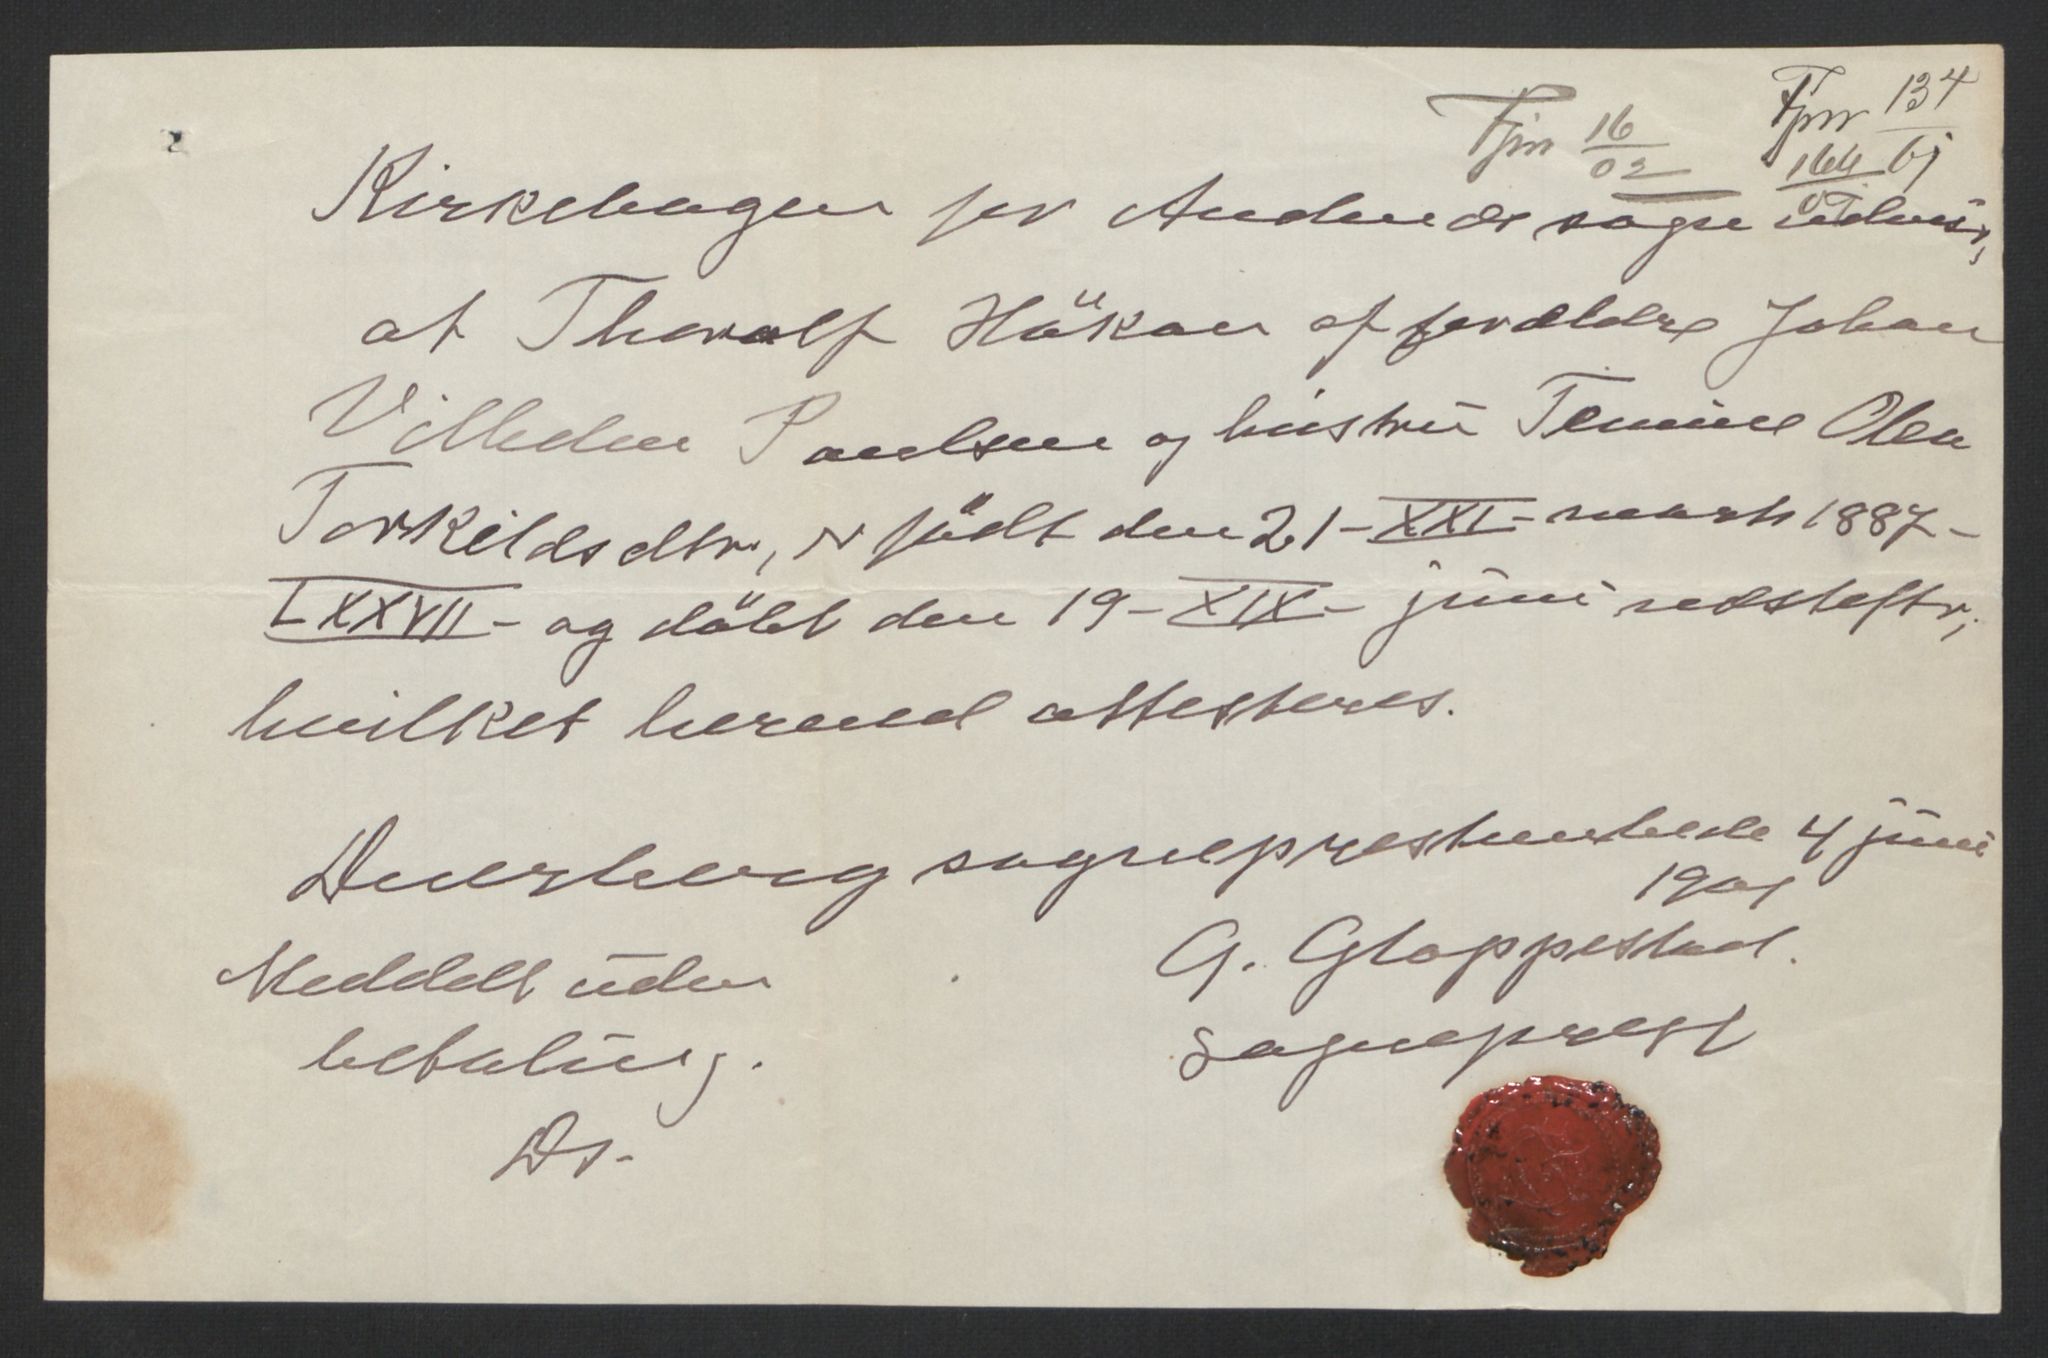 Fjnr 16/02
Fjnr 134/01
164/01
Kirkebogen for Andenæs sogn udvis,
at Thoralf Håkon af forældre Johan
Vilhelm Paulsen og hustru Temine Olea
Torkildsdtr, er födt den 21-XXI- marts 1887-
LXXXVII- og döbt den 19-XIX- juni næsteftr,
hvilket herved attesteres.
Dverberg sogneprestembede 4 juni
1901
G. Gloppestad.
sogneprest
Meddelt uden
betaling.
Ds-